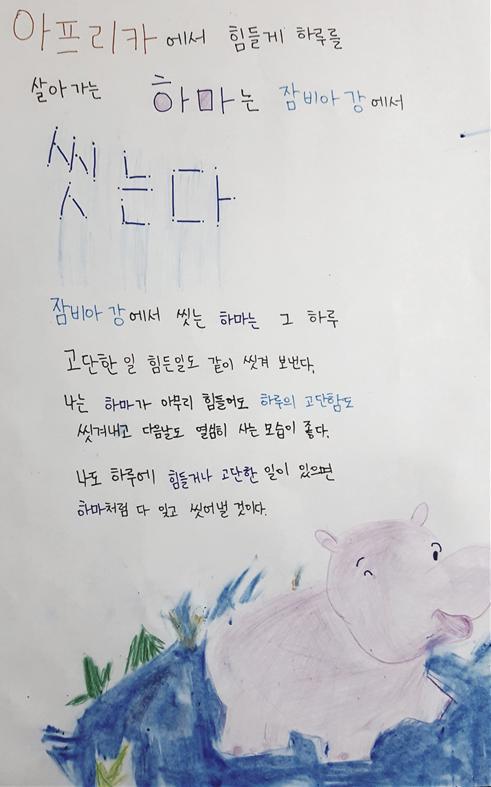 아프리카에서 힘들게 하루를
살아가는 하마는 잠비아 강에서
씻는다
잠비아 강에서 씻는 하마는 그 하루
고단한 일 힘든일도 같이 씻겨 보낸다.
나는 하마가 아무리 힘들어도 하루의 고단함도
씻겨내고 다음날도 열심히 사는 모습이 좋다.
나도 하루에 힘들거나 고단한 일이 있으면
하마처럼 다 잊고 씻어낼 것이다.